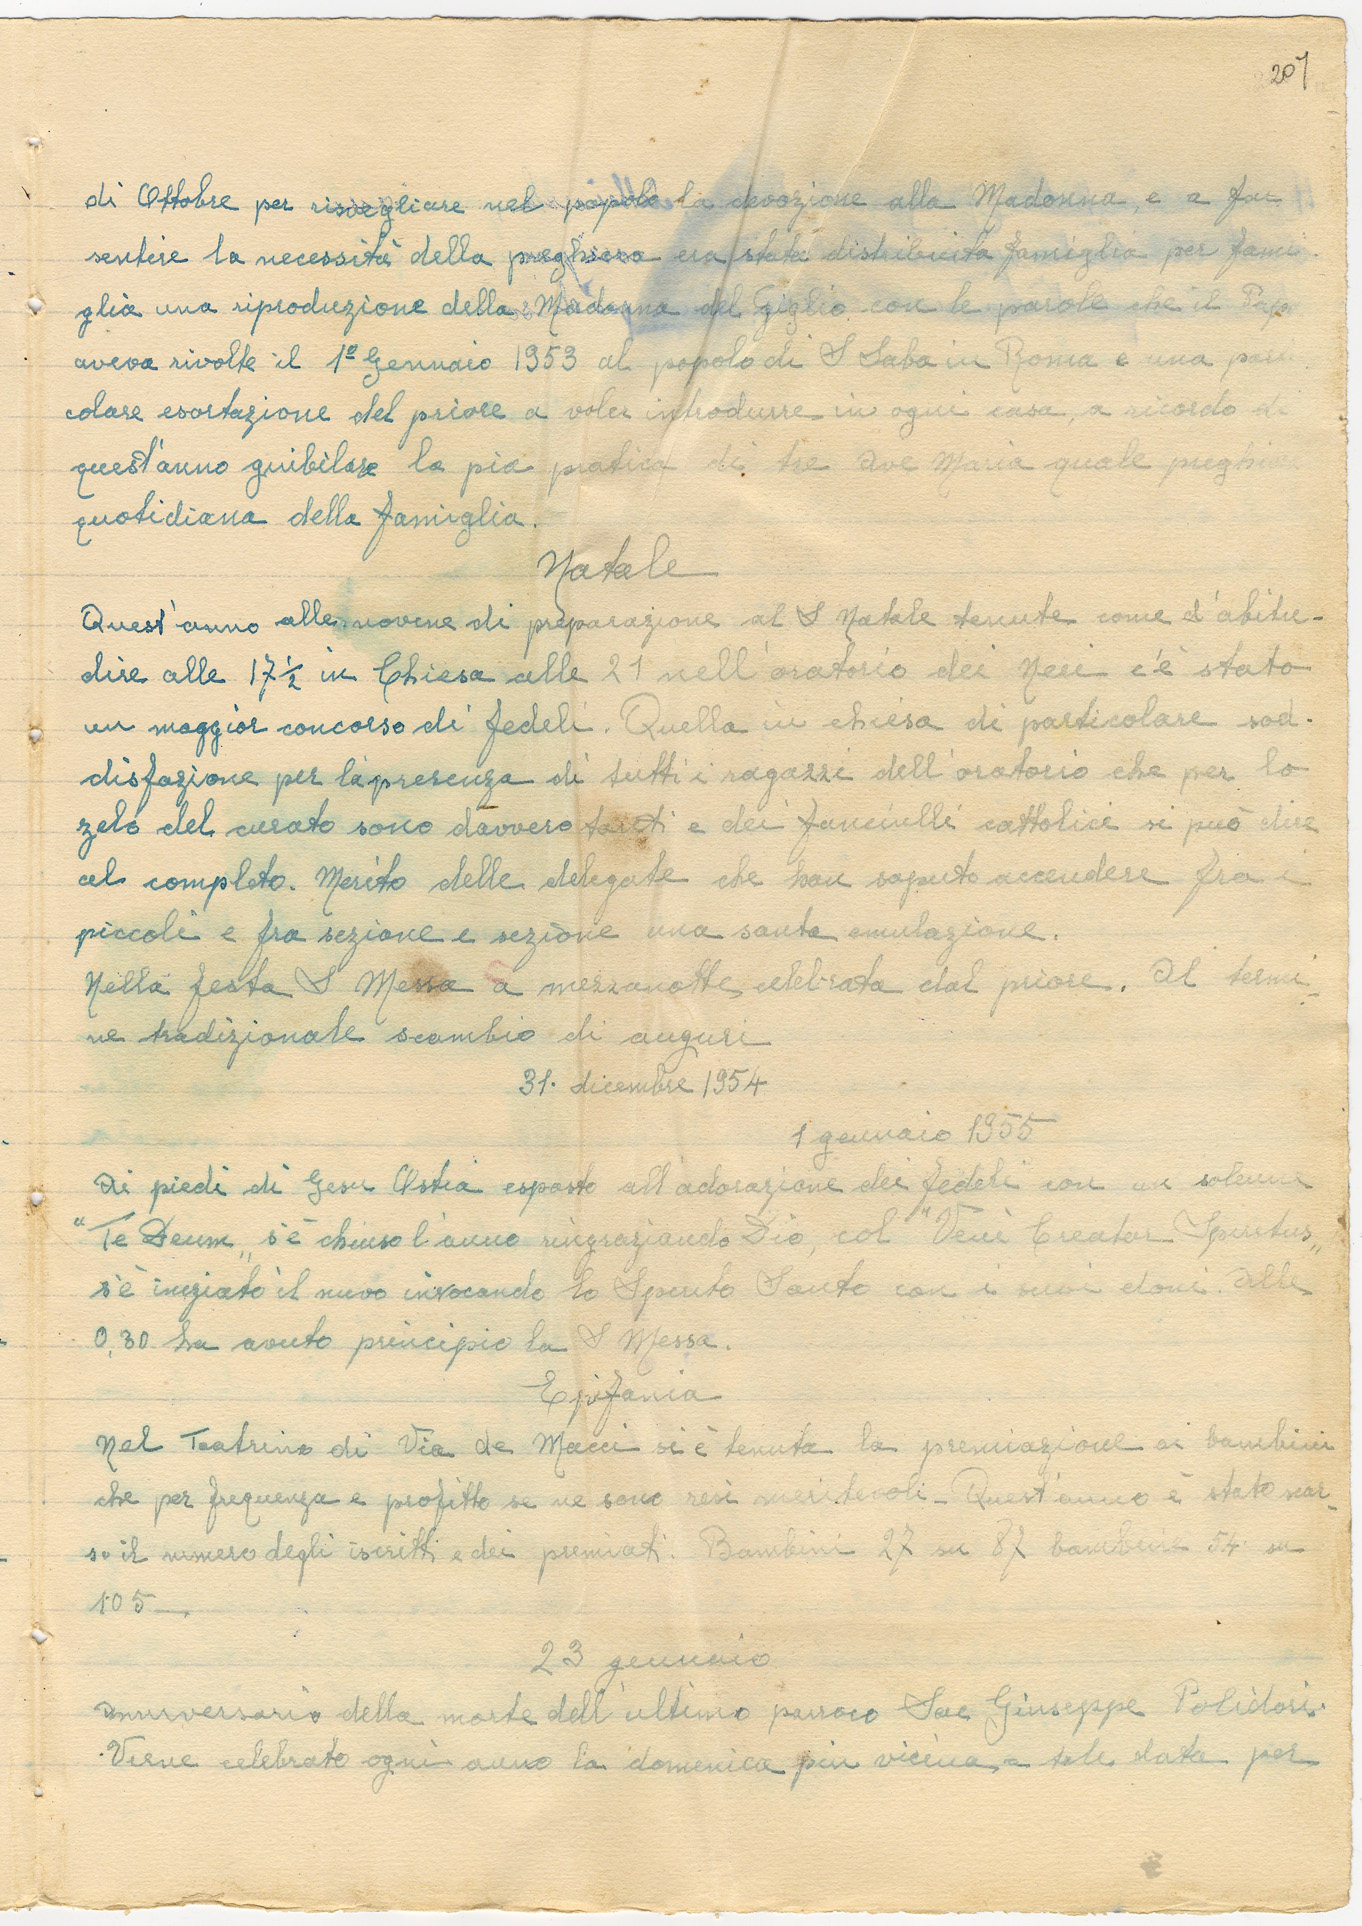 207
di Ottobre per risvegliare nel popolo la devozione alla Madonna, e a far
sentire la necessità della preghiera era stata distribuita famiglia per fami-
glia una riproduzione della Madonna del Giglio con le parole che il Papa
aveva rivolte il 1º Gennaio 1953 al popolo di S Saba in Roma e una parti
colare esortazione del priore a voler introdurre in ogni casa, a ricordo di
quest'anno giubilare la pia pratica di tre Ave Maria quale preghiera
quotidiana della famiglia.
Natale
Quest'anno alle novene di preparazione al S Natale tenute come d'abitu-
dire alle 17½ in Chiesa alle 21 nell'oratorio dei Neri c'è stato
un maggior concorso di fedeli. Quella in chiesa di particolare sod-
disfazione per la presenza di tutti i ragazzi dell'oratorio che per lo
zelo del curato sono davvero tanti e dei fanciulli cattolici si può dire
al completo. Merito delle delegate che han saputo accendere fra i
piccoli e fra sezione e sezione una santa emulazione.
Nella festa S Messa a mezzanotte celebrata dal priore. Al termi-
ne tradizionale scambio di auguri
31. dicembre 1954
1 gennaio 1955
Ai piedi di Gesu Ostia esposto all'adorazione dei fedeli con un solenne
"Te Deum" s'è chiuso l'anno ringraziando Dio, col "Veni Creator Spiritus"
s'è iniziato il nuovo invocando lo Spirito Santo con i suoi doni. Alle
0,30 ha avuto principio la S Messa.
Epifania
Nel Teatrino di Via de Macci si è tenuta la premiazione ai bambini
che per frequenza e profitto se ne sono resi meritevoli - Quest'anno è stato scar-
so il numero degli iscritti e dei premiati. Bambini 27 su 87 bambine 54 su
105 -.
23 gennaio
anniversario della morte dell'ultimo parroco Sac Giuseppe Polidori.
Viene celebrato ogni anno la domenica più vicina a tale data per